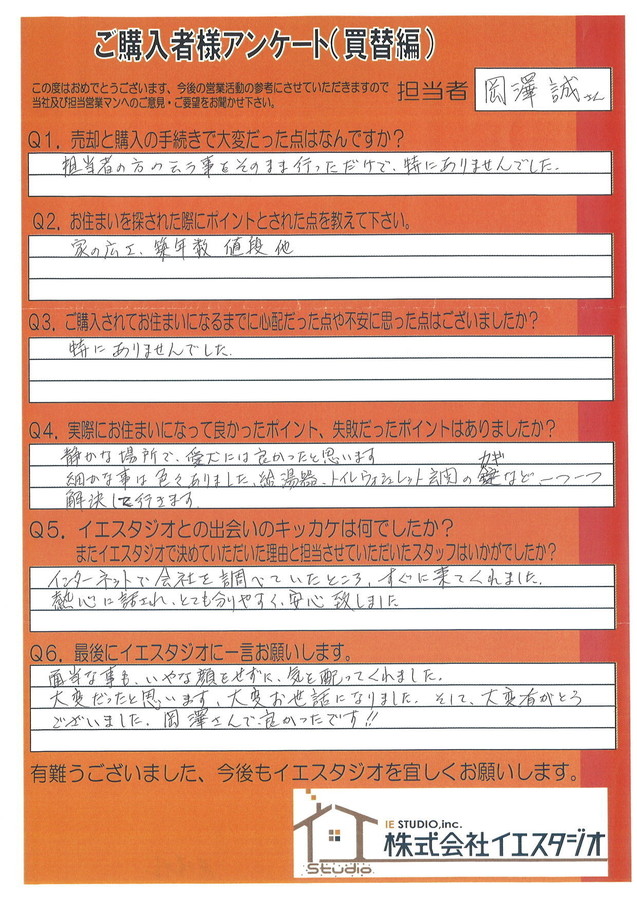 ご購入者様アンケート(買替編)
この度はおめでとうございます、今後の営業活動の参考にさせていただきますので
当社及び担当営業マンへのご意見・ご要望をお聞かせ下さい。
担当者 岡澤誠さん
Q1. 売却と購入の手続きで大変だった点はなんですか?
担当者の方の云う事をそのまま行っただけで、特にありませんでした。
Q2. お住まいを探された際にポイントとされた点を教えて下さい。
家の広さ、築年数 値段 他
Q3. ご購入されてお住まいになるまでに心配だった点や不安に思った点はございましたか?
特にありませんでした。
Q4. 実際にお住まいになって良かったポイント、失敗だったポイントはありましたか?
静かな場所で、愛犬には良かったと思います
細かな事は色々ありました、給湯器、トイレウォシュレット玄関の鍵など一つ一つ
カギ
解決して行きます。
Q5. イエスタジオとの出会いのキッカケは何でしたか?
またイエスタジオで決めていただいた理由と担当させていただいたスタッフはいかがでしたか?
インターネットで会社を調べていたところ、すぐに来てくれました。
熱心に話され、とても分りやすく、安心致しました
Q6. 最後にイエスタジオに一言お願いします。
面当な事も、いやな顔をせずに、気を配ってくれました。
大変だったと思います、大変お世話になりました。そして、大変有がとう
ございました。岡澤さんで、良かったです!!
有難うございました、今後もイエスタジオを宜しくお願いします。
IE STUDIO,inc.
株式会社イエスタジオ
Studio